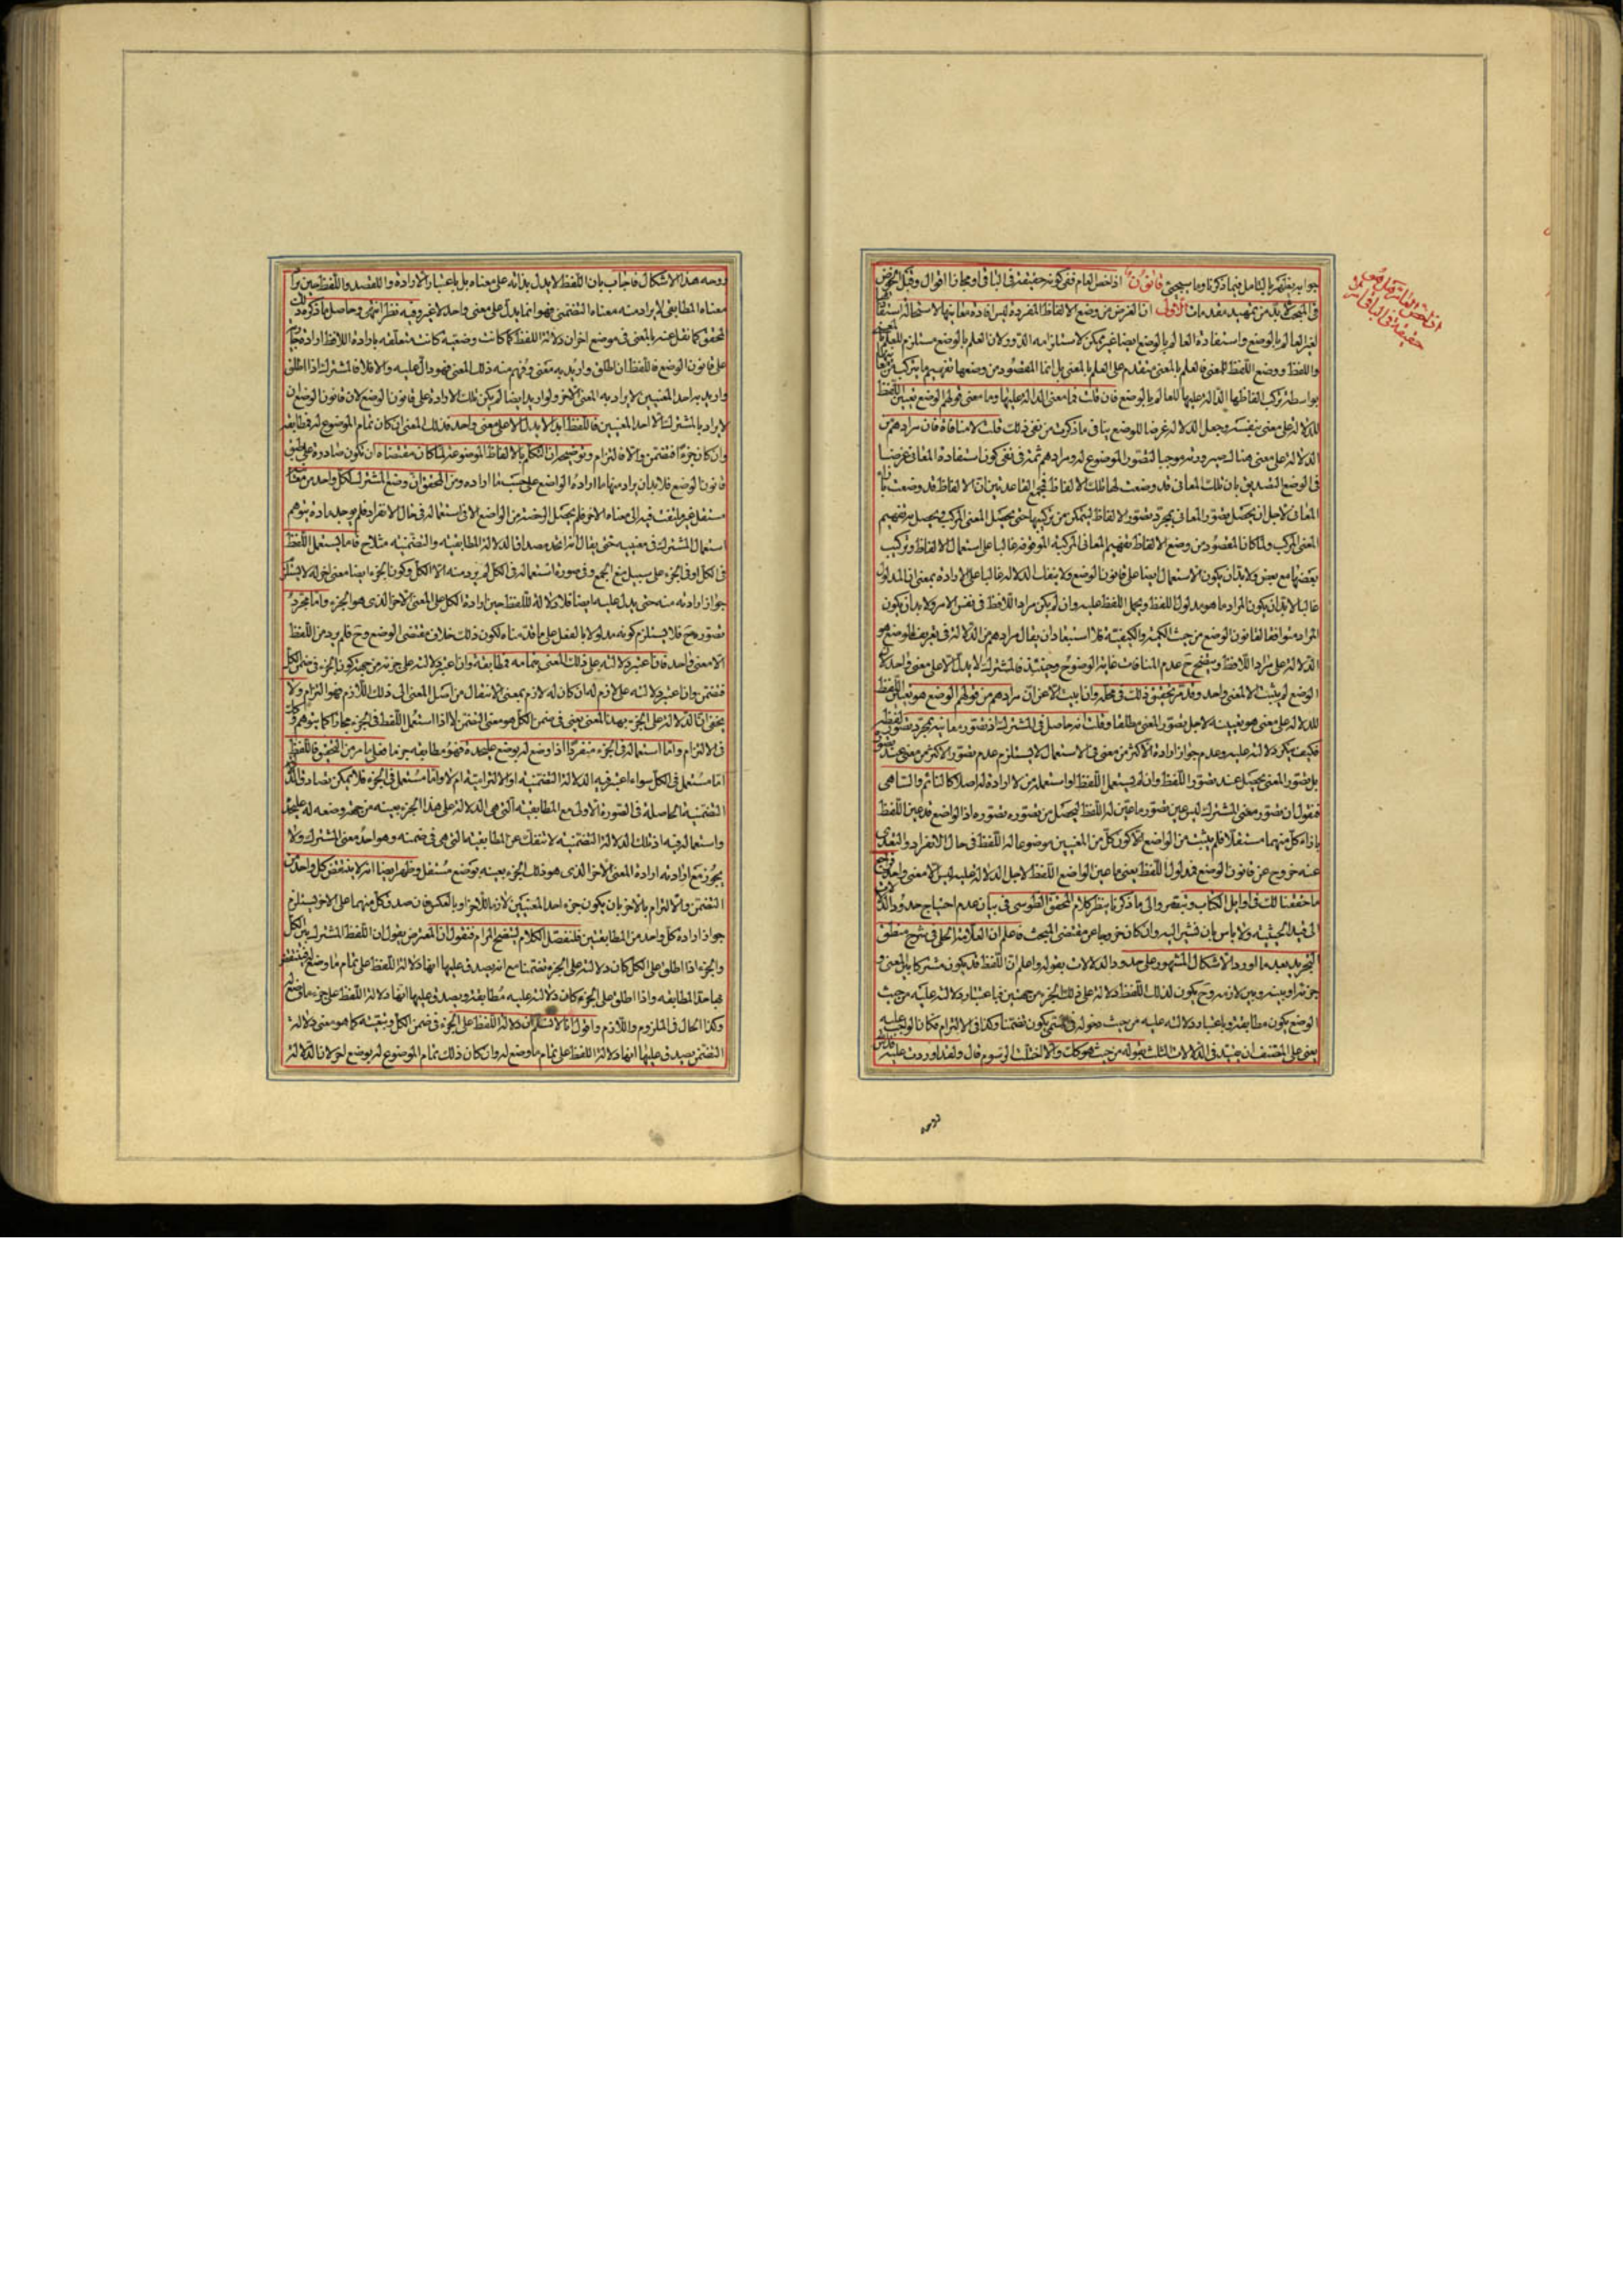 جوابه يظهر بالتامل فيما ذكرنا وما سيجئ قانون اذا خص العام ففى كونه حقيقة فى الباقى او مجازا اقوال وقبل الخوض
فى المبحث لا بد من تمهيد مقدمات الأولى ان الغرض من وضع الالفاظ المفردة ليس افادة معانيها لاستحالة استفادة
لغير العالم بالوضع واستفادة العالم بالوضع ايضا غير ممكن لاستلزامه الدور لان العلم بالوضع مستلزم للعلم بالمعنى
واللفظ ووضع اللفظ للمعنى فالعلم بالمعنى متقدم على العلم بالمعنى بل انما المقصود من وضعها تفهيم ما يتركب من معانيها
بواسطة تركيب الفاظها الدالة عليها للعالم بالوضع فان قلت فما معنى الدلالة عليها وما معنى قولهم الوضع تعيين اللفظ
للدلالة على معنى بنفسه وجعل الدلالة غرضا للوضع ينافى ما ذكرت من نفى ذلك قلت لا منافاة فان مرادهم من
الدلالة على معنى هنا لك صيرورته موجبا لتصور الموضوع له ومرادهم ثمة فى نفى كون استفادة المعانى غرضا
فى الوضع التصديق بان تلك المعانى قد وضعت لها تلك الالفاظ فمجمع القاعدتين ان الالفاظ قد وضعت بازاء
المعانى لاجل ان يحصل تصور المعانى بمجرد تصور الالفاظ ليتمكن من تركيبها حتى يحصل المعنى المركب ويحصل به تفهيم
المعنى المركب ولما كان المقصود من وضع الالفاظ تفهيم المعانى المركبة الموقوفة غالبا على استعمال الالفاظ وتركيب
بعضها مع بعض ولا بد ان يكون الاستعمال ايضا على قانون الوضع ولا ينفك الدلالة غالبا على الارادة بمعنى ان المدلول
غالبا لا بد ان يكون المراد ما هو مدلول اللفظ ويحمل اللفظ عليه وان لم يكن مراد اللافظ فى نفس الامر ولا بد ان يكون
المراد موافقا لقانون الوضع من حيث الكمية والكيفية فلا استبعاد ان يقال مرادهم من الدلالة فى تعريف الوضع هو
الدلالة على مراد اللافظ ويتضح ح عدم المنافات غاية الوضوح وحينئذ فالمشترك لا يدل الا على معنى واحد لان
الوضع لم يثبت الا لمعنى واحد وقد مر تحقيق ذلك فى محله وان ابيت الا عن ان مرادهم من قولهم الوضع هو تعيين اللفظ
للدلالة على معنى هو تعيينه لاجل تصور المعنى مطلقا وقلت انه حاصل فى المشترك اذ تصور معانيه بمجرد تصور لفظه
فكيف ينكر دلالته عليه وعدم جواز ارادة الاكثر من معنى فى الاستعمال لا يستلزم عدم تصور الاكثر من معنى عند تصوره
بل تصور المعنى يحصل عند تصور اللفظ وان لم يستعمل اللفظ او استعمله من لا ارادة له اصلا كالنائم والساهى
فنقول ان تصور معنى المشترك ليس عين تصور ما عين له اللفظ ليحصل من تصوره تصوره اذ الواضع قد عين اللفظ
بازاء كل منهما مستقلا فلم يثبت من الواضع الا كون كل من المعنيين موضوعا له اللفظ فى حال الانفراد والتعدى
عنه خروج عن قانون الوضع فمدلول اللفظ يعنى ما عين الواضع اللفظ لاجل الدلالة عليه ليس الا معنى واحد وراجع
ما حققنا لك فى اوايل الكتاب وتبصر والى ما ذكرنا ينظر كلام المحقق الطوسى فى بيان عدم احتياج حدود الدلالات
الى قيد الحيثية ولا باس بان نشير اليه وان كان خروجا عن مقتضى المبحث فاعلم ان العلامة الحلى فى شرح منطق
التجريد بعد ما اورد الاشكال المشهور على حدود الدلالات بقوله واعلم ان اللفظ قد يكون مشتركا بين المعنى و
جزئه او بينه وبين لازمه وح يكون لذلك اللفظ دلالة على ذلك الجزء من جهتين فباعتبار دلالته عليه من حيث
الوضع يكون مطابقة وباعتبار دلالته عليه من حيث دخوله فى المسمى يكون تضمنا وكذا فى الالتزام فكان الواجب عليه
يعنى على المصنف ان يقيد فى الدلالات الثلث بقوله من حيث هو كذلك والا اختلت الرسوم قال ولقد اوردت عليه قدس
اذا خص العام هل هو
حقيقة فى الباقى ام لا
روحه هذا الاشكال فاجاب بان اللفظ لا يدل بذاته على معناه بل باعتبار الارادة والقصد واللفظ حين يراد
معناه المطابقى لا يراد منه معناه التضمنى فهو انما يدل على معنى واحد لا غير وفيه نظر انتهى وحاصل ما ذكره ذلك
المحقق كما نقل عنه بالمعنى فى موضع اخر ان دلالة اللفظ لما كانت وضعية كانت متعلقة بارادة اللافظ ارادة جارية
على قانون الوضع فاللفظ ان اطلق واريد به معنى وفهم منه ذلك المعنى فهو دال عليه والا فلا فالمشترك اذا اطلق
واريد به احد المعنيين لا يراد به المعنى الاخر ولو اريد ايضا لم يكن تلك الارادة على قانون الوضع لان قانون الوضع ان
لا يراد بالمشترك الا احد المعنيين فاللفظ ابدا لا يدل الا على معنى واحد فذلك المعنى ان كان تمام الموضوع له فمطابقة
وان كان جزءا فتضمن والا فالتزام وتوضيحه ان التكلم بالالفاظ الموضوعة لما كان مقتضاه ان تكون صادرة على طبق
قانون الوضع فلا بد ان يراد منها ما اراده الواضع على حسب ما اراده ومن المحقق ان وضع المشترك لكل واحد من معانيه
مستقل غير ملتفت فيه الى معناه الاخر فلم يحصل الرخصة من الواضع الا فى استعماله فى حال الانفراد فلم يوجد مادة يتوهم
استعمال المشترك فى معنييه حتى يقال انه اتحد مصداقا الدلالة المطابقية والتضمنية مثلا ح فاما يستعمل اللفظ
فى الكل او فى الجزء على سبيل منع الجمع وفى صورة استعماله فى الكل لم يرد منه الا الكل وكون الجزء ايضا معنى اخر له لا يستلزم
جواز ارادته منه حتى يدل عليه ايضا فلا دلالة للفظ حين ارادة الكل على المعنى الاخر الذى هو الجزء واما مجرد
تصوره ح فلا يستلزم كونه مدلولا بالفعل على ما قدمناه لكون ذلك خلاف مقتضى الوضع وح فلم يرد من اللفظ
الا معنى واحد فان اعتبر دلالته على ذلك المعنى بتمامه فمطابقة وان اعتبر دلالته على جزئه من جهة كون الجزء فى ضمن الكل
فتضمن وان اعتبر دلالته على لازم له ان كان له لازم بمعنى الانتقال من اصل المعنى الى ذلك اللازم فهو التزام ولا
يخفى ان الدلالة على الجزء بهذا المعنى يعنى فى ضمن الكل هو معنى التضمن لا اذا استعمل اللفظ فى الجزء مجازا كما يتوهم وكذلك
فى الالتزام واما استعماله فى الجزء منفردا اذا وضع له بوضع عليحدة فهو مطابقة جزما فعلى ما مر من التحقيق فاللفظ
اما مستعمل فى الكل سواء اعتبر فيه الدلالة التضمنية او الالتزامية ام لا واما مستعمل فى الجزء فلا يمكن تصادق الدلالة
التضمنية الحاصلة فى الصورة الاولى مع المطابقية التى هى الدلالة على هذا الجزء بعينه من جهة وضعه له عليحدة
واستعماله فيه اذ تلك الدلالة التضمنية لا تنفك عن المطابقية التى هى فى ضمنه وهو احد معنى المشترك ولا
يجوز مع ارادته ارادة المعنى الاخر الذى هو ذلك الجزء بعينه بوضع مستقل وظهر ايضا انه لا ينتقض كل واحد من
التضمن والالتزام بالاخر بان يكون جزء احد المعنيين لازما للاخر او بالعكس فان صدق كل منهما على الاخر يستلزم
جواز ارادة كل واحد من المطابقتين فلنفصل الكلام ليتضح المرام فنقول ان المعترض يقول ان اللفظ المشترك بين الكل
والجزء اذا اطلق على الكل كان دلالته على الجزء تضمنا مع انه يصدق عليها انها دلالة اللفظ على تمام ما وضع له فينتقض
بها حد المطابقة واذا اطلق على الجزء كان دلالته عليه مطابقة ويصدق عليها انها دلالة اللفظ على جزء ما وضع له
وكذا الحال فى الملزوم واللازم واقول انا لا نسلم ان دلالة اللفظ على الجزء فى ضمن الكل وبتبعيته كما هو معنى دلالة
التضمن يصدق عليها انها دلالة اللفظ على تمام ما وضع له وان كان ذلك تمام الموضوع له بوضع اخر لان الدلالة
روحه